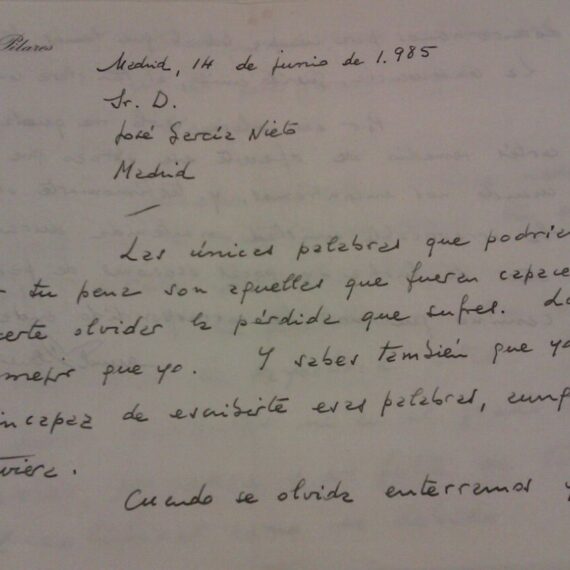 Pilares
Madrid, 14 de junio de 1.985
Sr. D.
José García Nieto
Madrid
Las únicas palabras que podrían
tu pena son aquellas que fueran capace
certe olvidar la pérdida que sufres. Lo
mejor que yo. Y sabes también que yo
incapaz de escribirte esas palabras, aunq
viera.
Cuando se olvida enterramos y